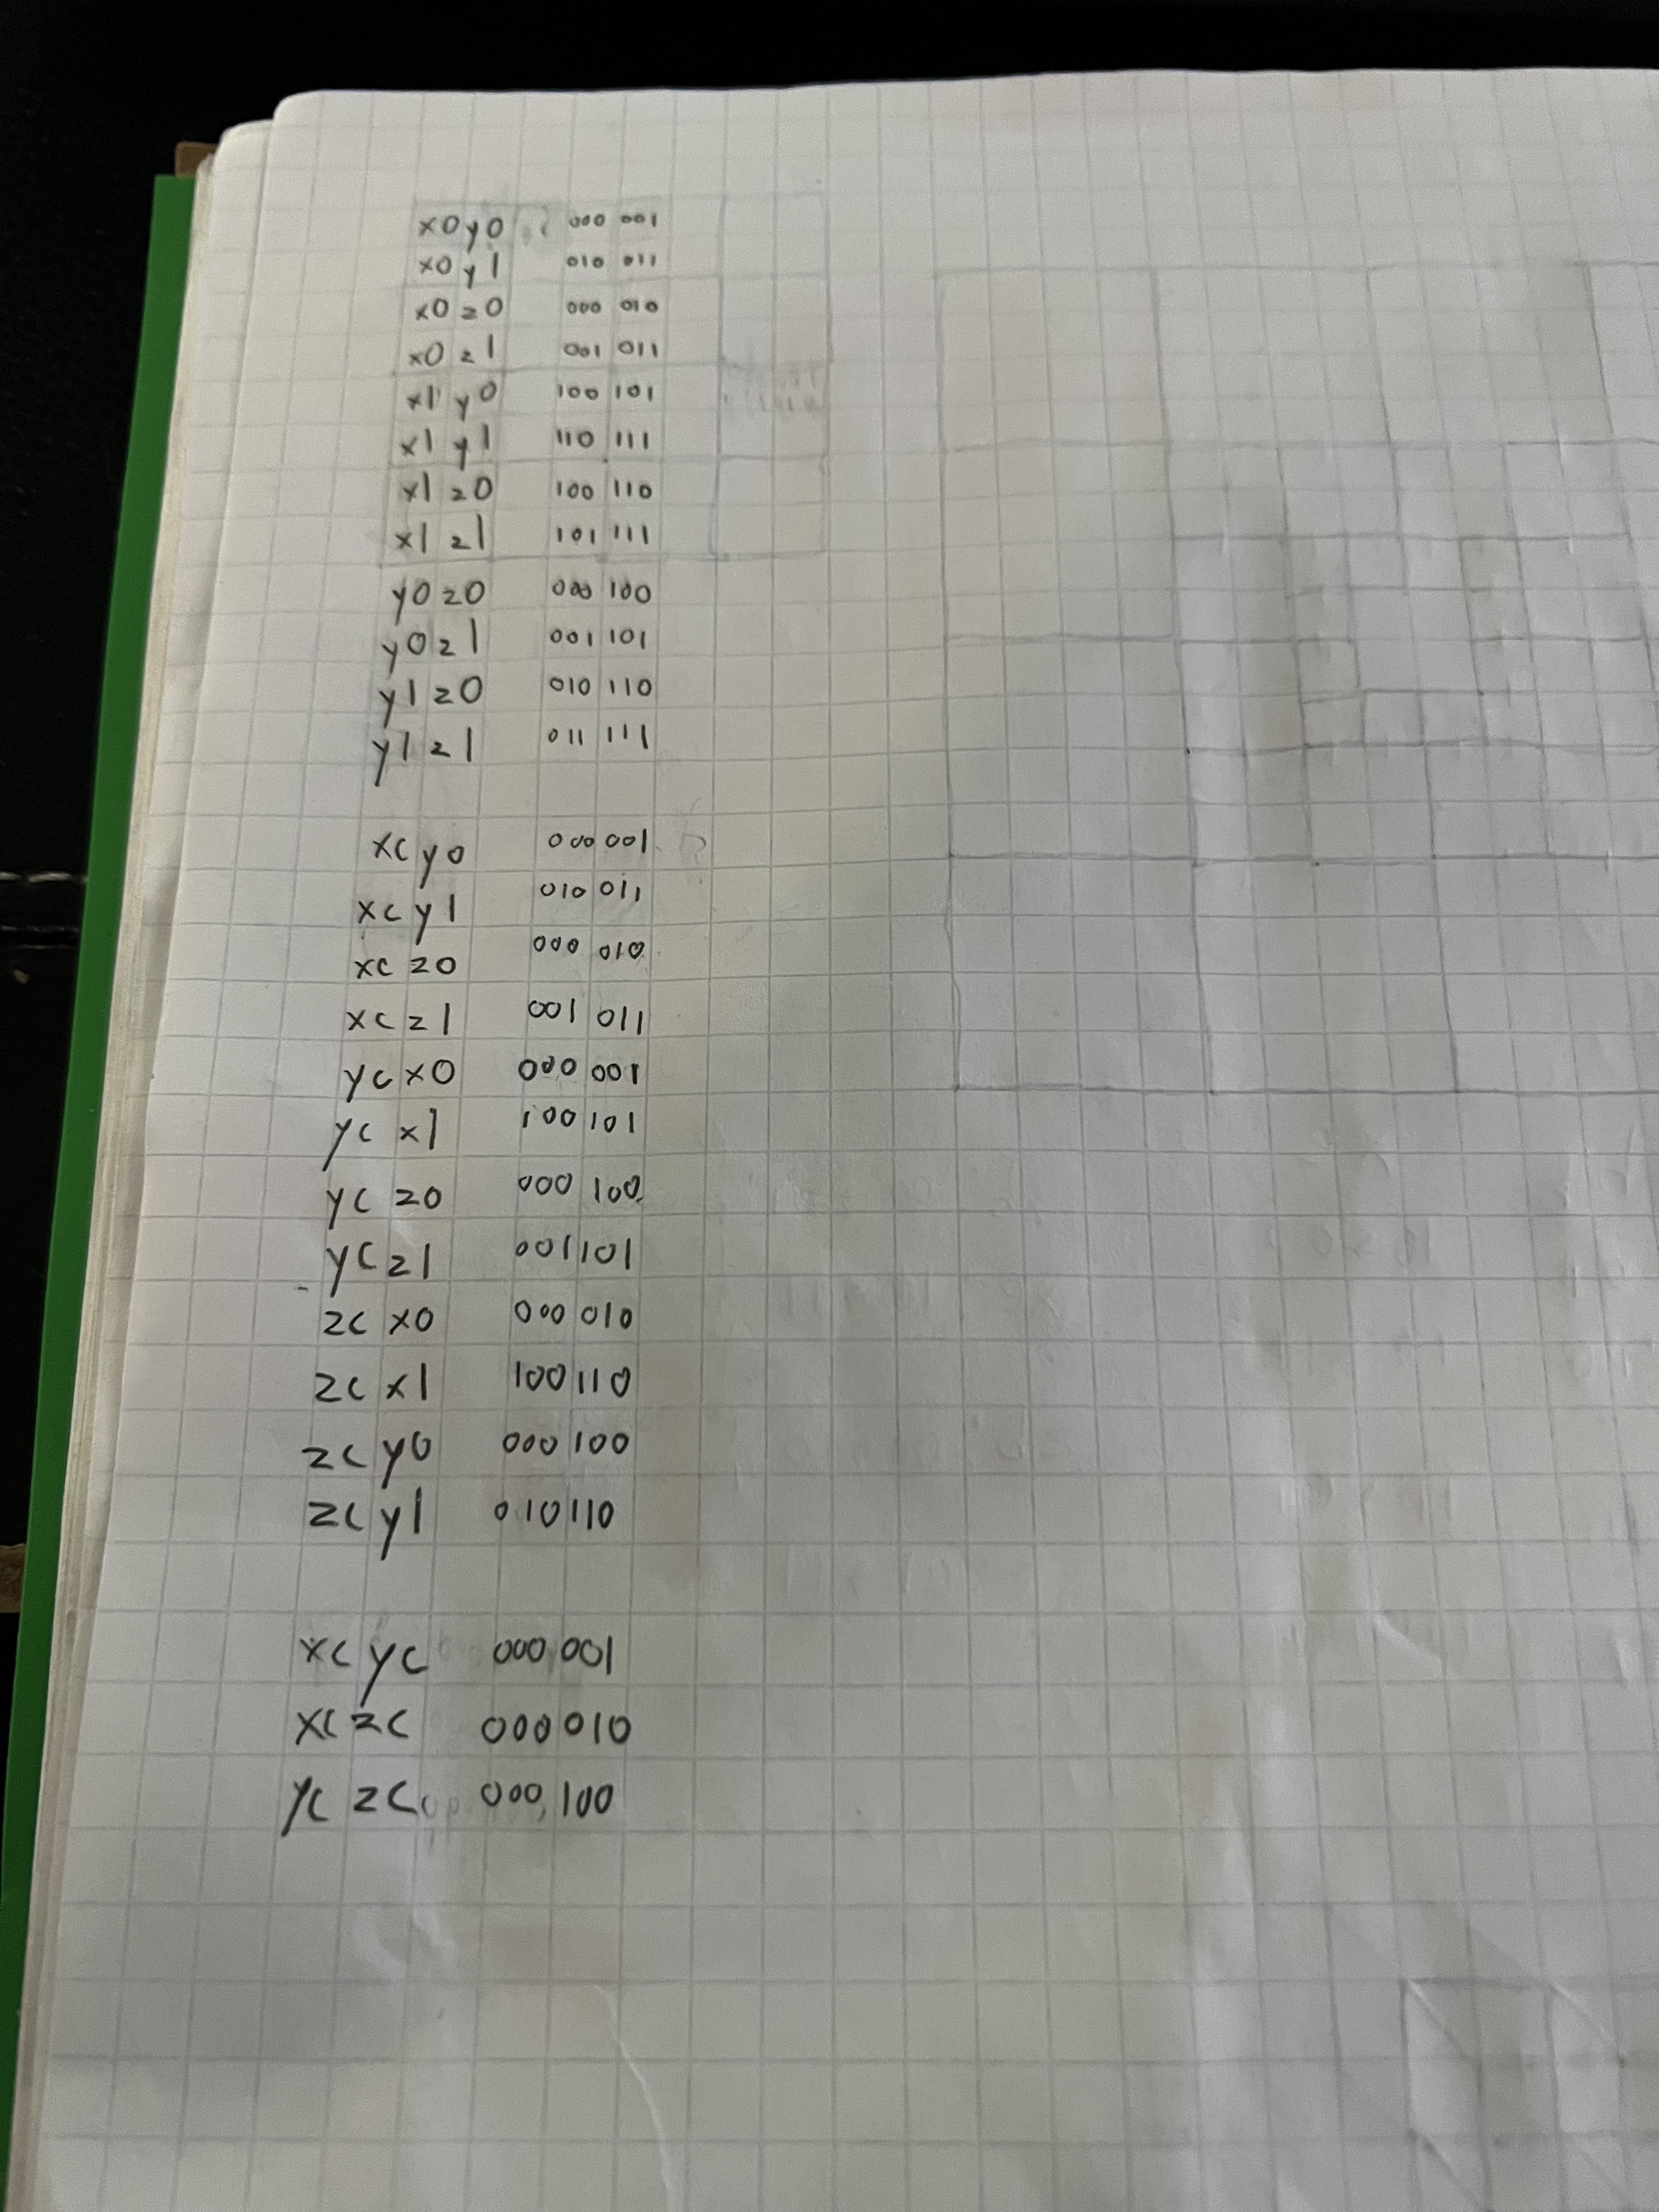 x0y0 000 001
x0y1 010 011
x0z0 000 010
x0z1 001 011
x1y0 100 101
x1y1 110 111
x1z0 100 110
x1z1 101 111
y0z0 000 100
y0z1 001 101
y1z0 010 110
y1z1 011 111
xcy0 000 001
xcy1 010 011
xcz0 000 010
xcz1 001 011
ycx0 000 001
ycx1 100 101
ycz0 000 100
ycz1 001 101
zcx0 000 010
zcx1 100 110
zcy0 000 100
zcy1 010 110
xcyc 000 001
xczc 000 010
yczc 000 100